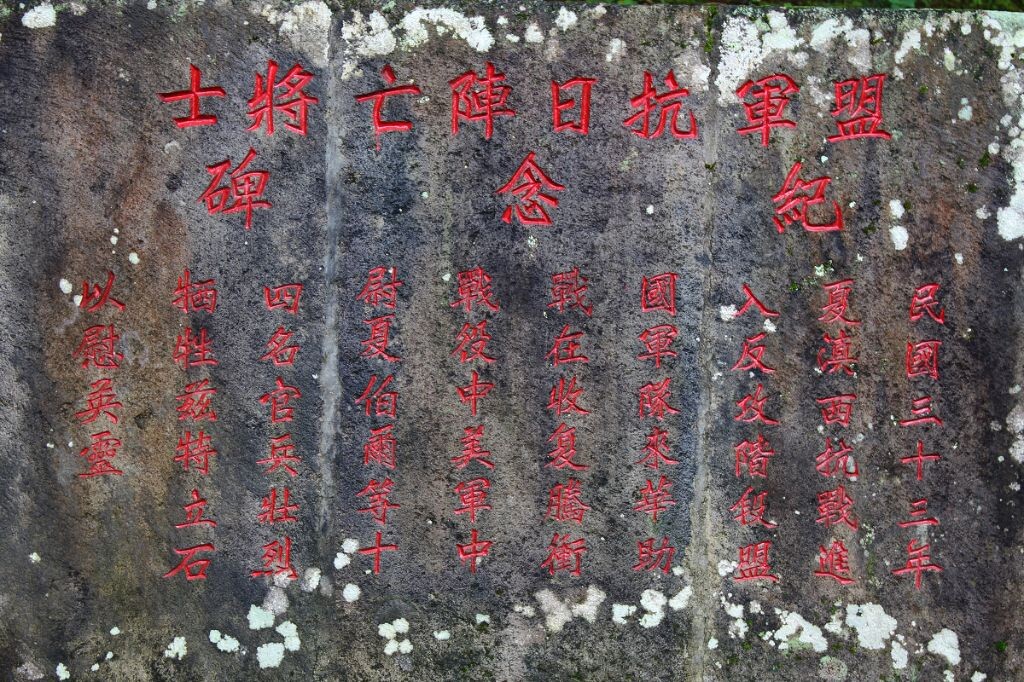 盟軍抗日陣亡將士
紀念碑
民國三十三年
夏滇西抗戰進
入反攻階段盟
國軍隊來華助
戰在收复騰衝
戰役中美軍中
尉夏伯爾等十
四名官兵壯烈
牺牲兹特立石
以慰英靈